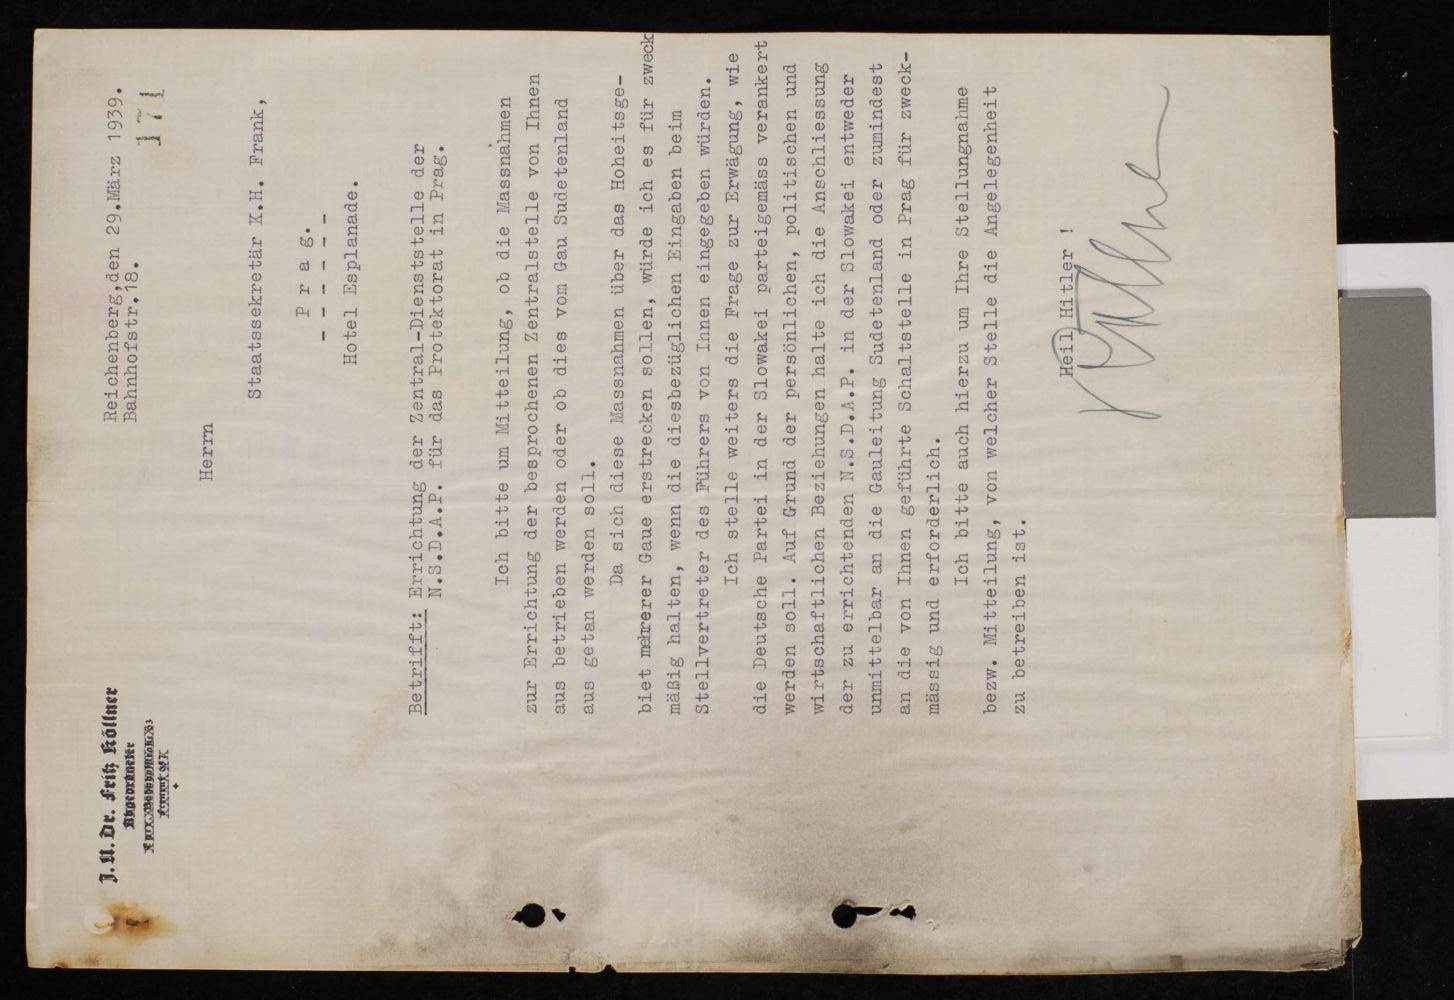 J.U.Dr. Fritz Köllner
Abgeordneter
Reichenberg,den 29.März 1939.
Bahnhofstr.18.
171
Herrn
Staatssekretär K.H. Frank,
P r a g.
- - - - -
Hotel Esplanade.
Betrifft: Errichtung der Zentral-Dienststelle der
N.S.D.A.P. für das Protektorat in Prag.
Ich bitte um Mitteilung, ob die Massnahmen
zur Errichtung der besprochenen Zentralstelle von Ihnen
aus betrieben werden oder ob dies vom Gau Sudetenland
aus getan werden soll.
Da sich diese Massnahmen über das Hoheitsge-
biet mehrerer Gaue erstrecken sollen, würde ich es für zweck
mäßig halten, wenn die diesbezüglichen Eingaben beim
Stellvertreter des Führers von Ihnen eingegeben würden.
Ich stelle weiters die Frage zur Erwägung, wie
die Deutsche Partei in der Slowakei parteigemäss verankert
werden soll. Auf Grund der persönlichen, politischen und
wirtschaftlichen Beziehungen halte ich die Anschliessung
der zu errichtenden N.S.D.A.P. in der Slowakei entweder
unmittelbar an die Gauleitung Sudetenland oder zumindest
an die von Ihnen geführte Schaltstelle in Prag für zweck-
mässig und erforderlich.
Ich bitte auch hierzu um Ihre Stellungnahme
bezw. Mitteilung, von welcher Stelle die Angelegenheit
zu betreiben ist.
Heil Hitler !
Köllner